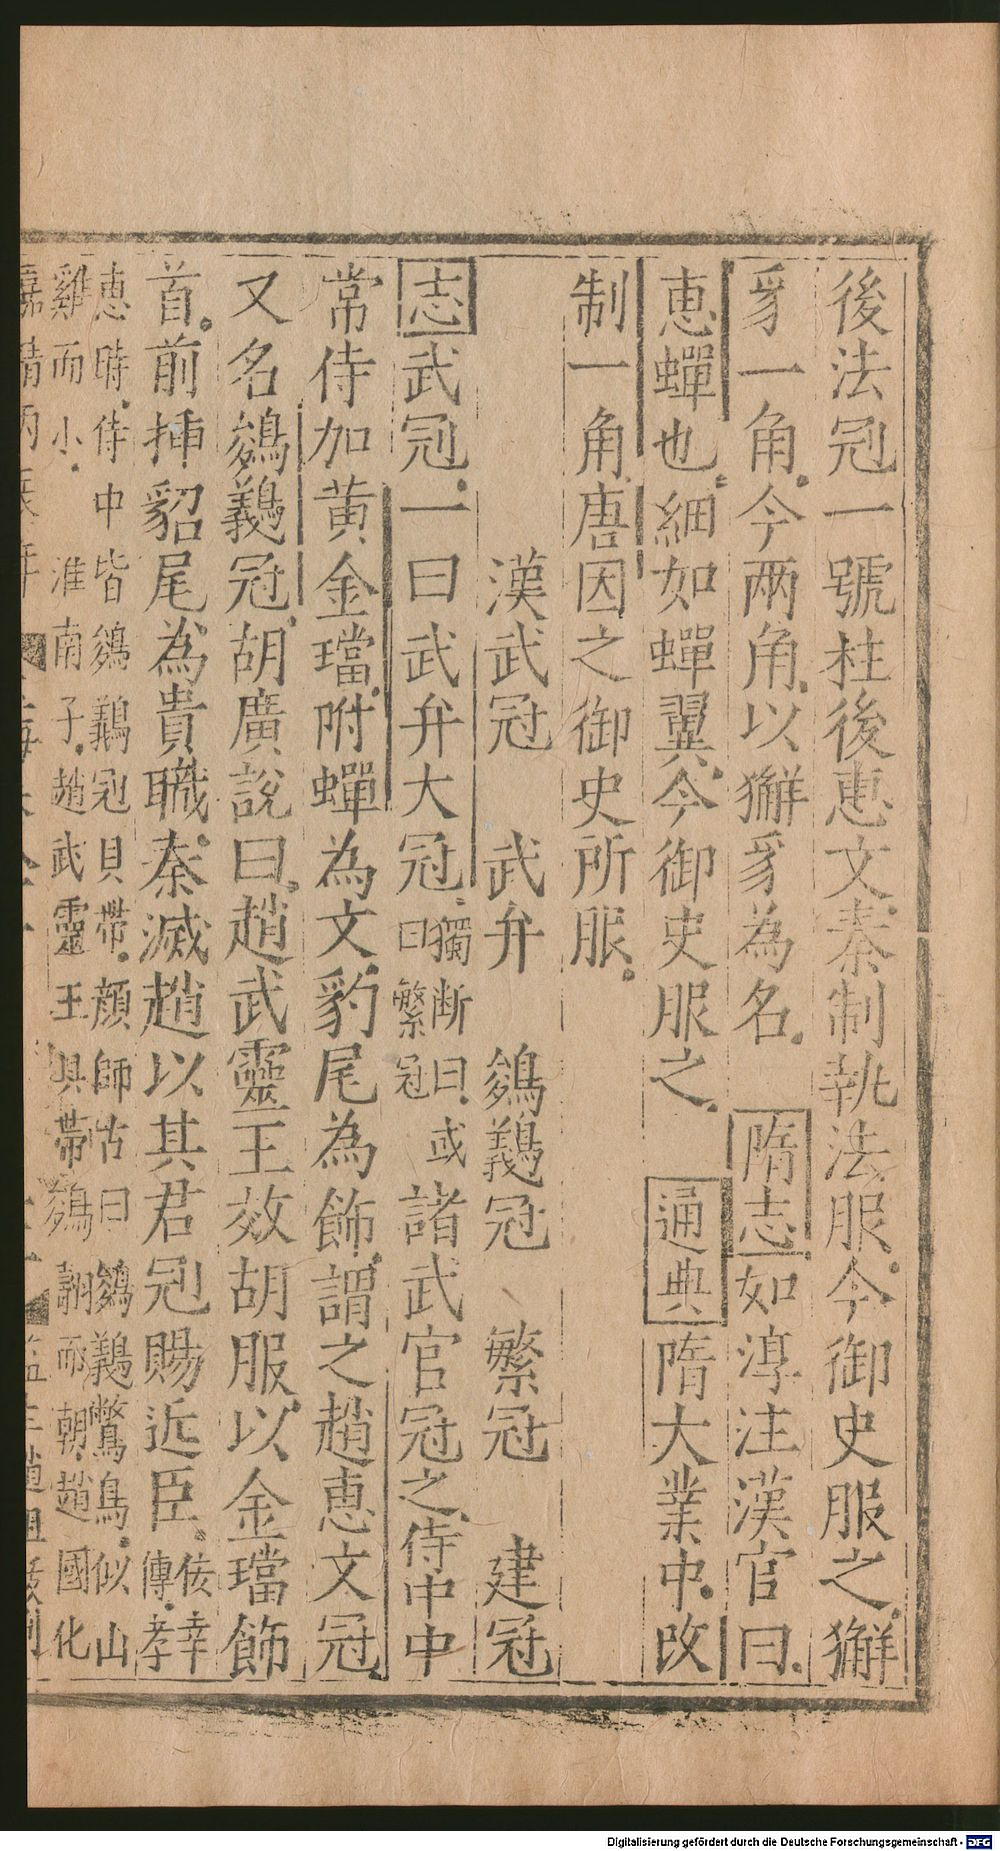 後法冠一號柱後恵文秦制執法服今御史服之獬
豸一角今兩角以獬豸為名 隋志如淳注漢官曰
恵蟬也細如蟬翼今御史服之 通典隋大業中改
制一角唐因之御史所服
漢武冠 武弁 鵕鸃冠 繁冠 建冠
志武冠一曰武弁大冠獨断曰或曰繁冠諸武官冠之侍中中
常侍加黄金璫附蟬為文豹尾為飾謂之趙恵文冠
又名鵕鸃冠胡廣說曰趙武靈王效胡服以金璫飾
首前挿貂尾為貴職秦滅趙以其君冠賜近臣佞幸傳孝
恵時侍中皆鵕鸃冠貝帶顔師古曰鵕鸃鷩鳥似山
雞而小 淮南子趙武靈王具帶鵕翿而朝趙國化
Digitalisierung gefördert durch die Deutsche Forschungsgemeinschaft - DFG